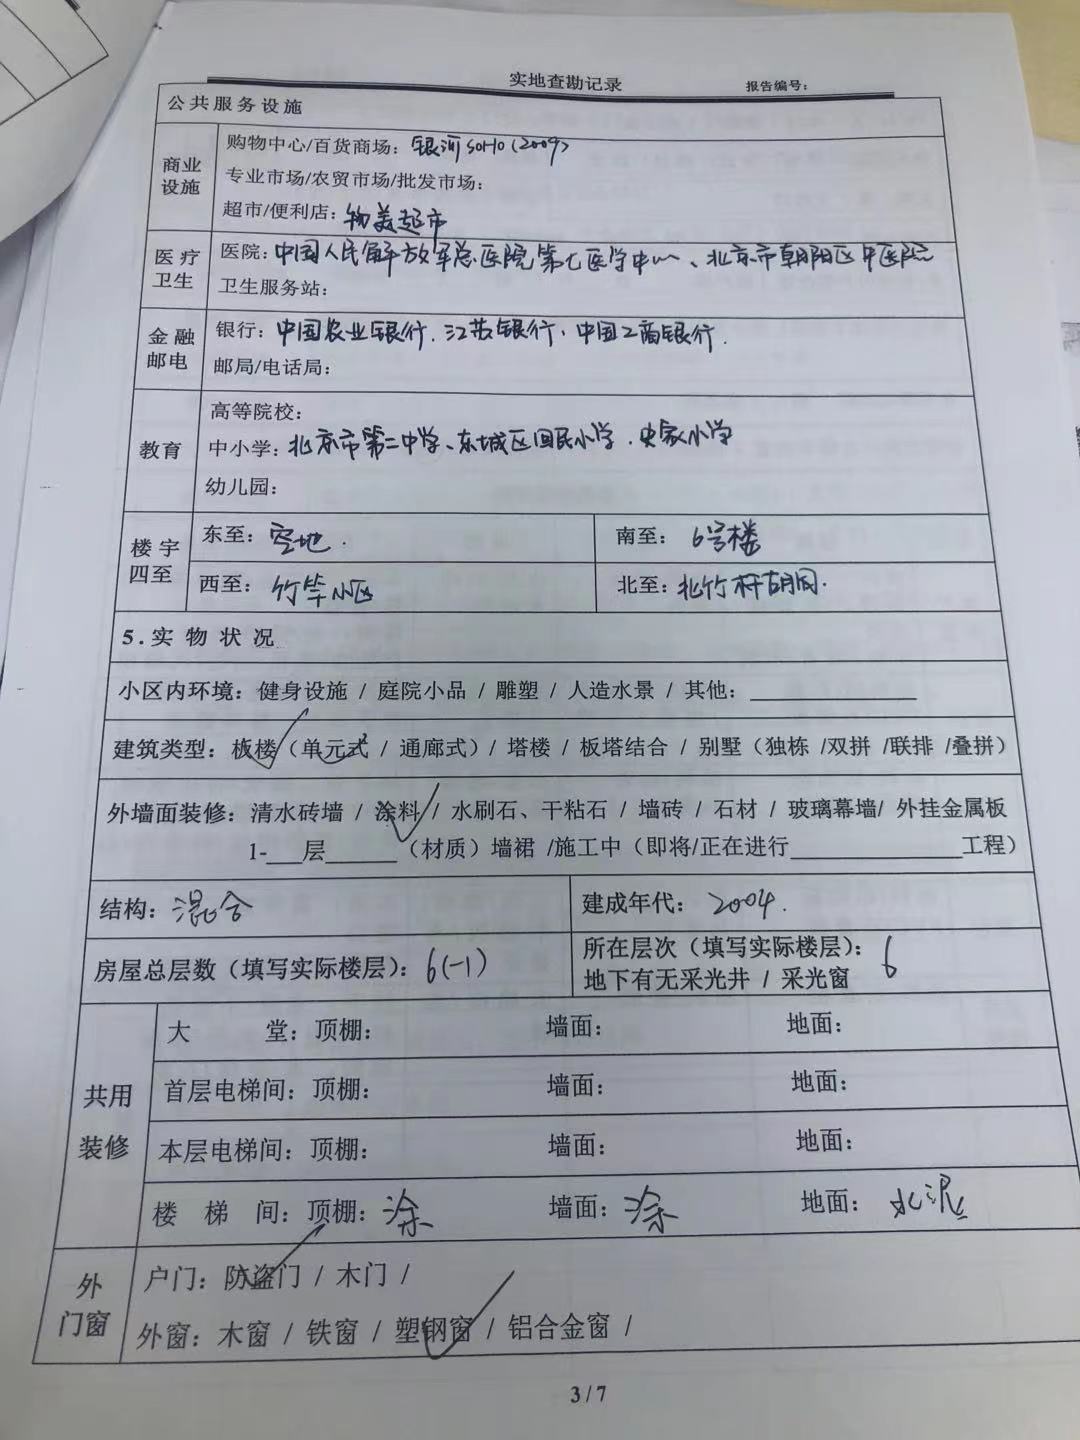 实地查勘记录
报告编号：
公共服务设施
商业设施
购物中心/百货商场：银河SOHO（2009）
专业市场/农贸市场/批发市场：
超市/便利店：物美超市
医疗卫生
医院：中国人民解放军总医院第七医学中心、北京市朝阳区中医院
卫生服务站：
金融邮电
银行：中国农业银行、江苏银行、中国工商银行.
邮局/电话局：
教育
高等院校：
中小学：北京市第二中学、东城区回民小学、史家小学
幼儿园：
楼宇四至
东至：空地.
南至：6号楼
西至：竹竿小区
北至：北竹杆胡同.
5.实物状况
小区内环境：健身设施 / 庭院小品 / 雕塑 / 人造水景 / 其他：
建筑类型：板楼（单元式 / 通廊式）/ 塔楼 / 板塔结合 / 别墅（独栋 /双拼 /联排 /叠拼）
外墙面装修：清水砖墙 / 涂料 / 水刷石、干粘石 / 墙砖 / 石材 / 玻璃幕墙/ 外挂金属板
1-___层______（材质）墙裙 /施工中（即将/正在进行______________工程）
结构：混合
建成年代：2004.
房屋总层数（填写实际楼层）：6(-1)
所在层次（填写实际楼层）：6
地下有无采光井 / 采光窗
共用装修
大堂：顶棚： 墙面： 地面：
首层电梯间：顶棚： 墙面： 地面：
本层电梯间：顶棚： 墙面： 地面：
楼梯间：顶棚：涂 墙面：涂 地面：水泥
外门窗
户门：防盗门 / 木门 /
外窗：木窗 / 铁窗 / 塑钢窗 / 铝合金窗 /
3/7